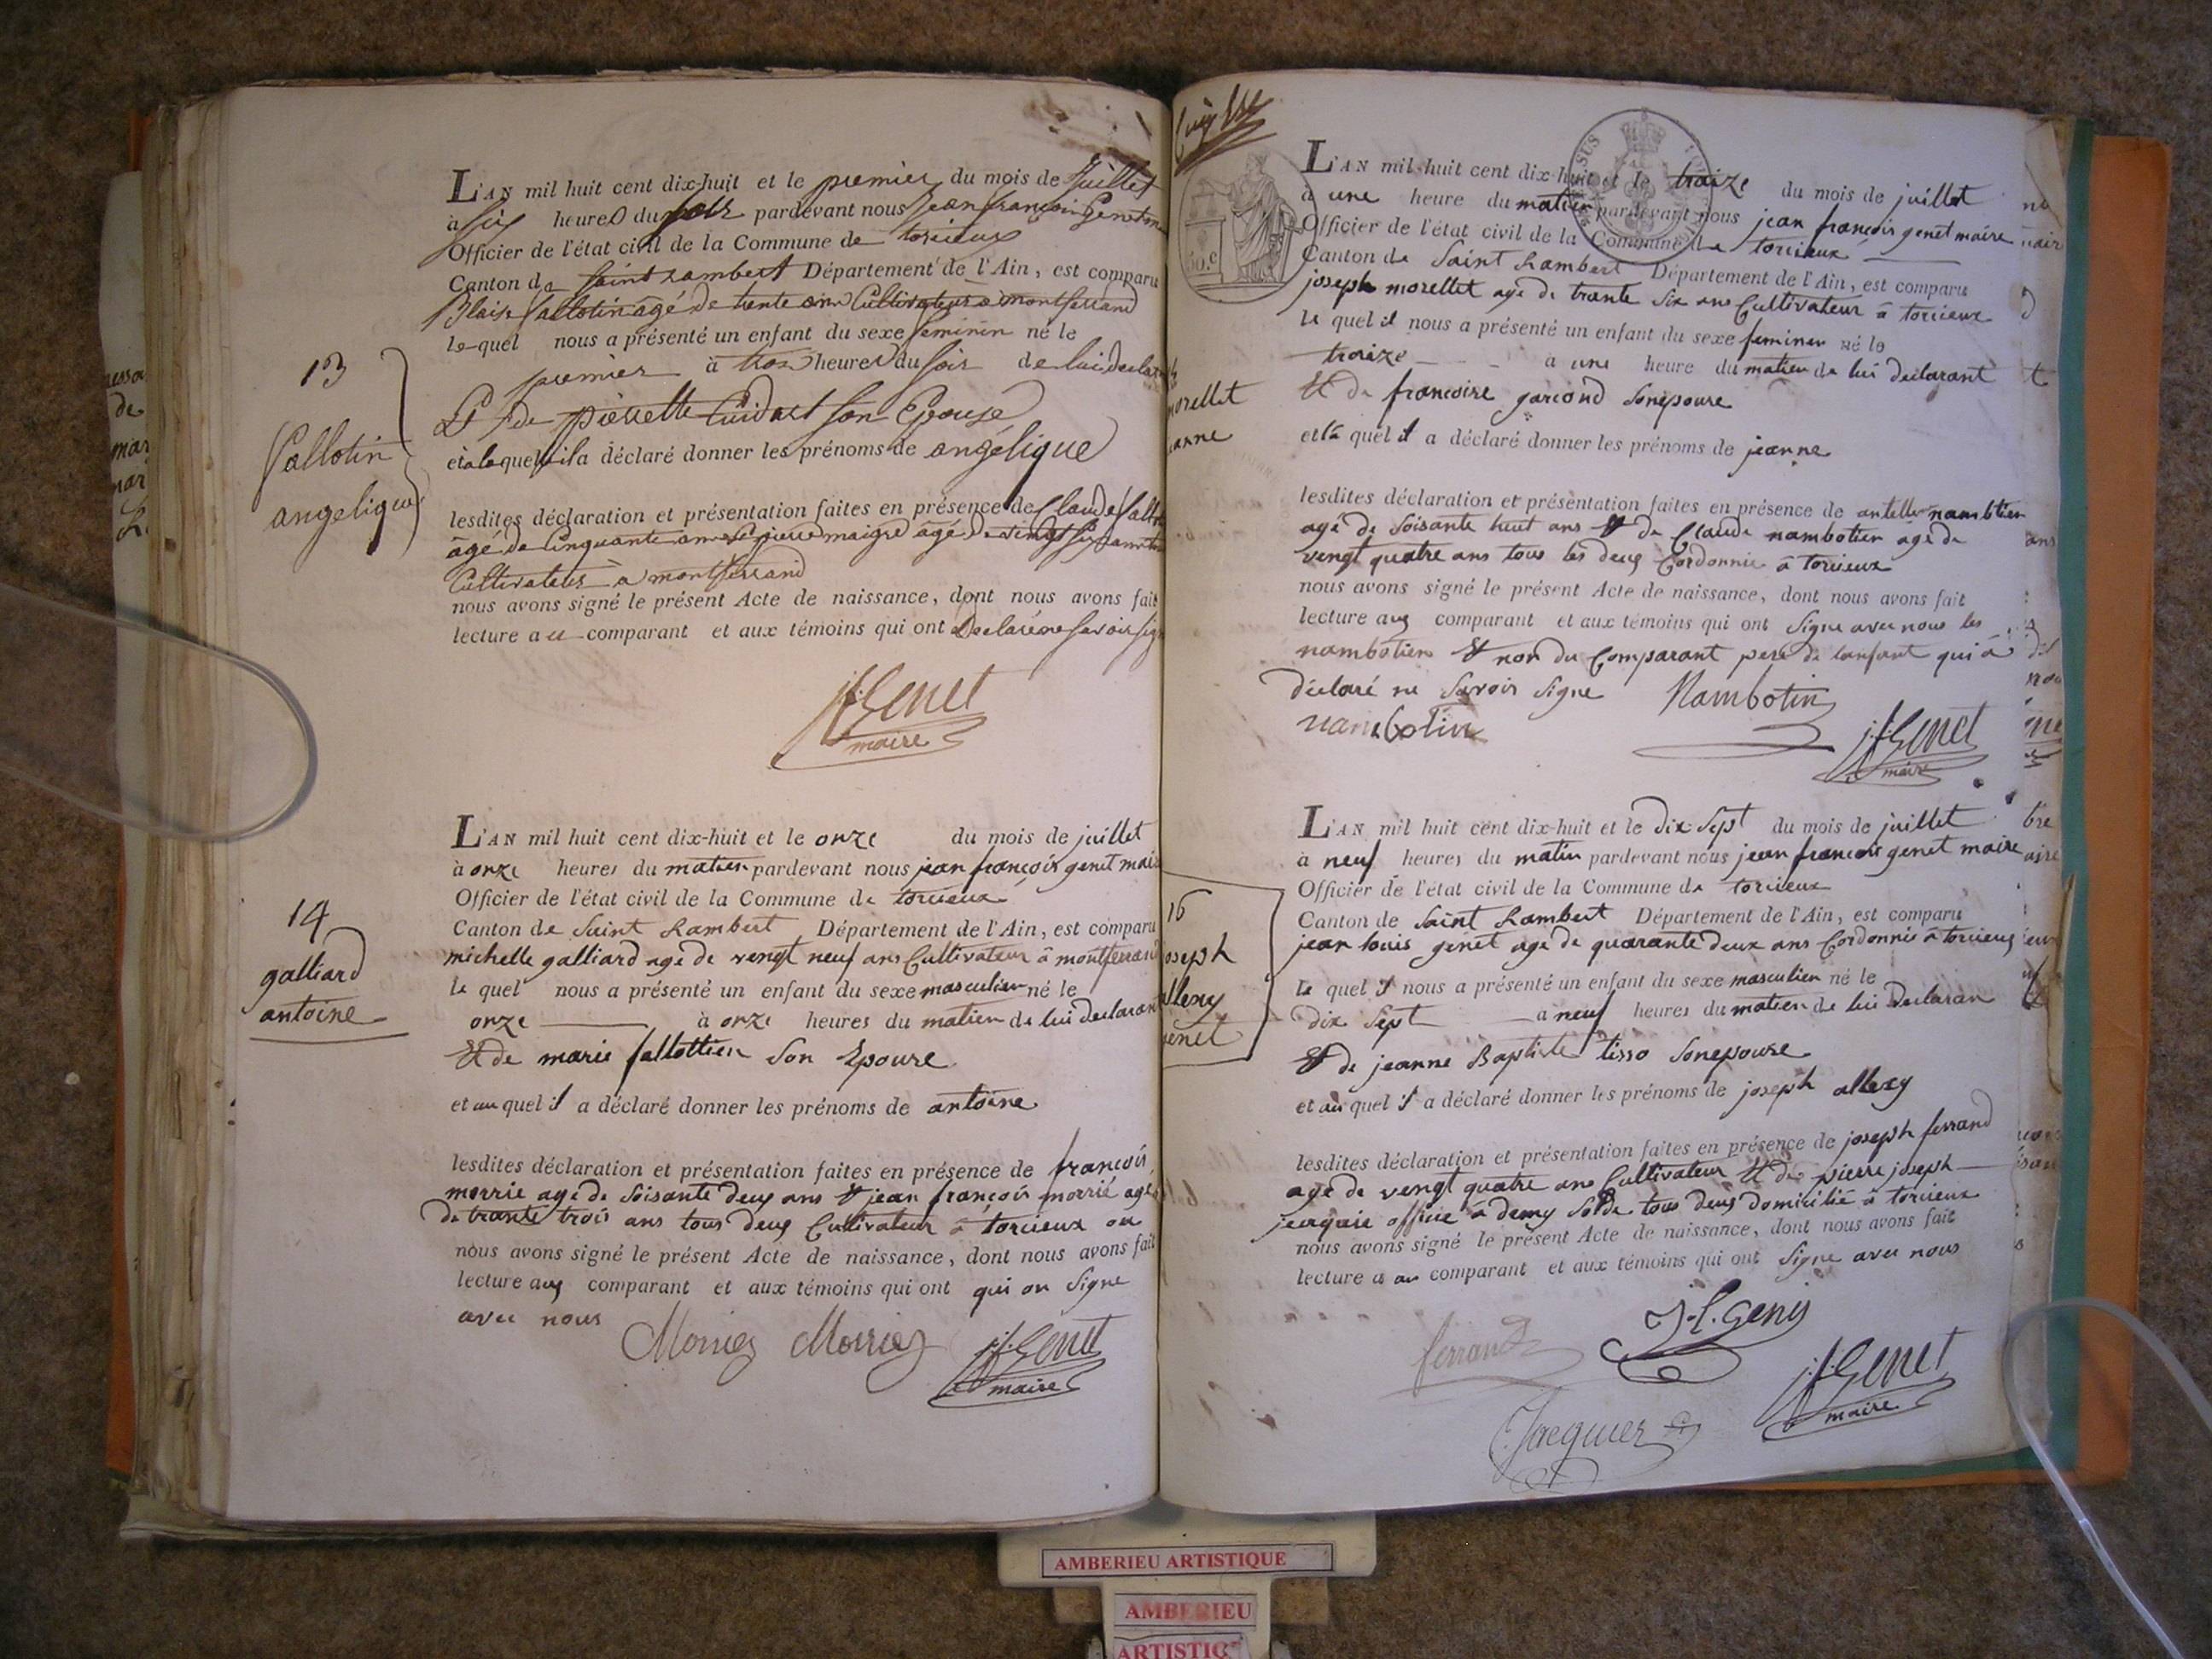 13
Sallotin
angelique
L'AN mil huit cent dix-huit et le premier du mois de Juillet
à six heures du soir pardevant nous jean françois Genet
Officier de l'état civil de la Commune de torcieux
Canton de Saint Rambert Département de l'Ain, est comparu
Blaise Sallotin agé de trente ans Cultivateur a montferrand
le quel nous a présenté un enfant du sexe feminin né le
premier à trois heures du soir de lui declarant
Et de pierrette Cuidart son Epouse
et à la quelle il a déclaré donner les prénoms de angélique
lesdites déclaration et présentation faites en présence de Claude
âgé de Cinquante ans et pierre maigre âgé de vingt six ans
Cultivateurs à montferrand
nous avons signé le présent Acte de naissance, dont nous avons fait
lecture au comparant et aux témoins qui ont Declaré ne savoir sig
jf Genet
maire
14
galliard
antoine
L'AN mil huit cent dix-huit et le onze du mois de juillet
à onze heures du matien pardevant nous jean françois genet maire
Officier de l'état civil de la Commune de torcieux
Canton de Saint Rambert Département de l'Ain, est comparu
michelle galliard agé de vengt neuf ans Cultivateur à montferrand
le quel nous a présenté un enfant du sexe masculien né le
onze à onze heures du matien de lui declaran
Et de marie sallottien son Epouse
et au quel il a déclaré donner les prénoms de antoine
lesdites déclaration et présentation faites en présence de françois
morrie agé de soisante deux ans & jean françois morrié agé
de trante trois ans tous deux Cultivateur à torcieux on
nous avons signé le présent Acte de naissance, dont nous avons fait
lecture aux comparant et aux témoins qui ont qui on signe
avec nous
Morriez Morriez jf Genet
maire
50.c
morellet
janne
L'AN mil huit cent dix-huit et le traize du mois de juillet
à une heure du matien pardevant nous jean françois genet maire
Officier de l'état civil de la Commune de torcieux
Canton de Saint Rambert Département de l'Ain, est comparu
joseph morellet agé de trante six ans Cultivateur à torcieux
le quel il nous a présenté un enfant du sexe feminen né le
traize à une heure du matien de lui declarant
Et de françoise garcond son epouse
et à quel il a déclaré donner les prénoms de jeanne
lesdites déclaration et présentation faites en présence de antelle nambtien
agé de soisante huit ans & de Claude nambotien agé de
vengt quatre ans tous les deux Cordonnie à torcieux
nous avons signé le présent Acte de naissance, dont nous avons fait
lecture aux comparant et aux témoins qui ont signe avec nous les
nambotien & non du Comparant pere de lanfant qui à
déclaré ne savoir signe Nambotin
nambotin
jf Genet
maire
16
joseph
allexy
genet
L'AN mil huit cent dix-huit et le dix sept du mois de juillet
à neuf heures du matin pardevant nous jean francois genet maire
Officier de l'état civil de la Commune de torcieux
Canton de Saint Rambert Département de l'Ain, est comparu
jean louis genet agé de quarante deux ans Cordonnié à torcieux
le quel il nous a présenté un enfant du sexe masculien né le
dix sept à neuf heures du matien de lui declaran
& de jeanne Baptiste tisso son epouse
et au quel il a déclaré donner les prénoms de joseph allexy
lesdites déclaration et présentation faites en présence de joseph ferrand
agé de vengt quatre ans Cultivateur Et de pierre joseph
jearquie officie à demy solde tous deux domicilié à torcieux
nous avons signé le présent Acte de naissance, dont nous avons fait
lecture a au comparant et aux témoins qui ont signe avec nous
ferrand J.L. Geny
jf Genet
maire
Jacquier
AMBERIEU ARTISTIQUE
AMBERIEU
ARTISTIQ